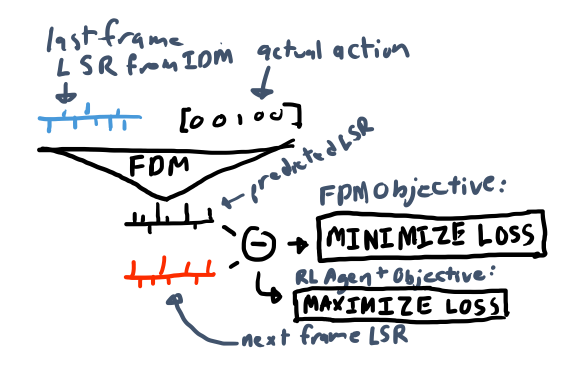 last frame
LSR from IDM
actual action
[00100]
FDM
predicted LSR
FDM Objective:
MINIMIZE LOSS
RL Agent Objective:
MAXIMIZE LOSS
next frame LSR